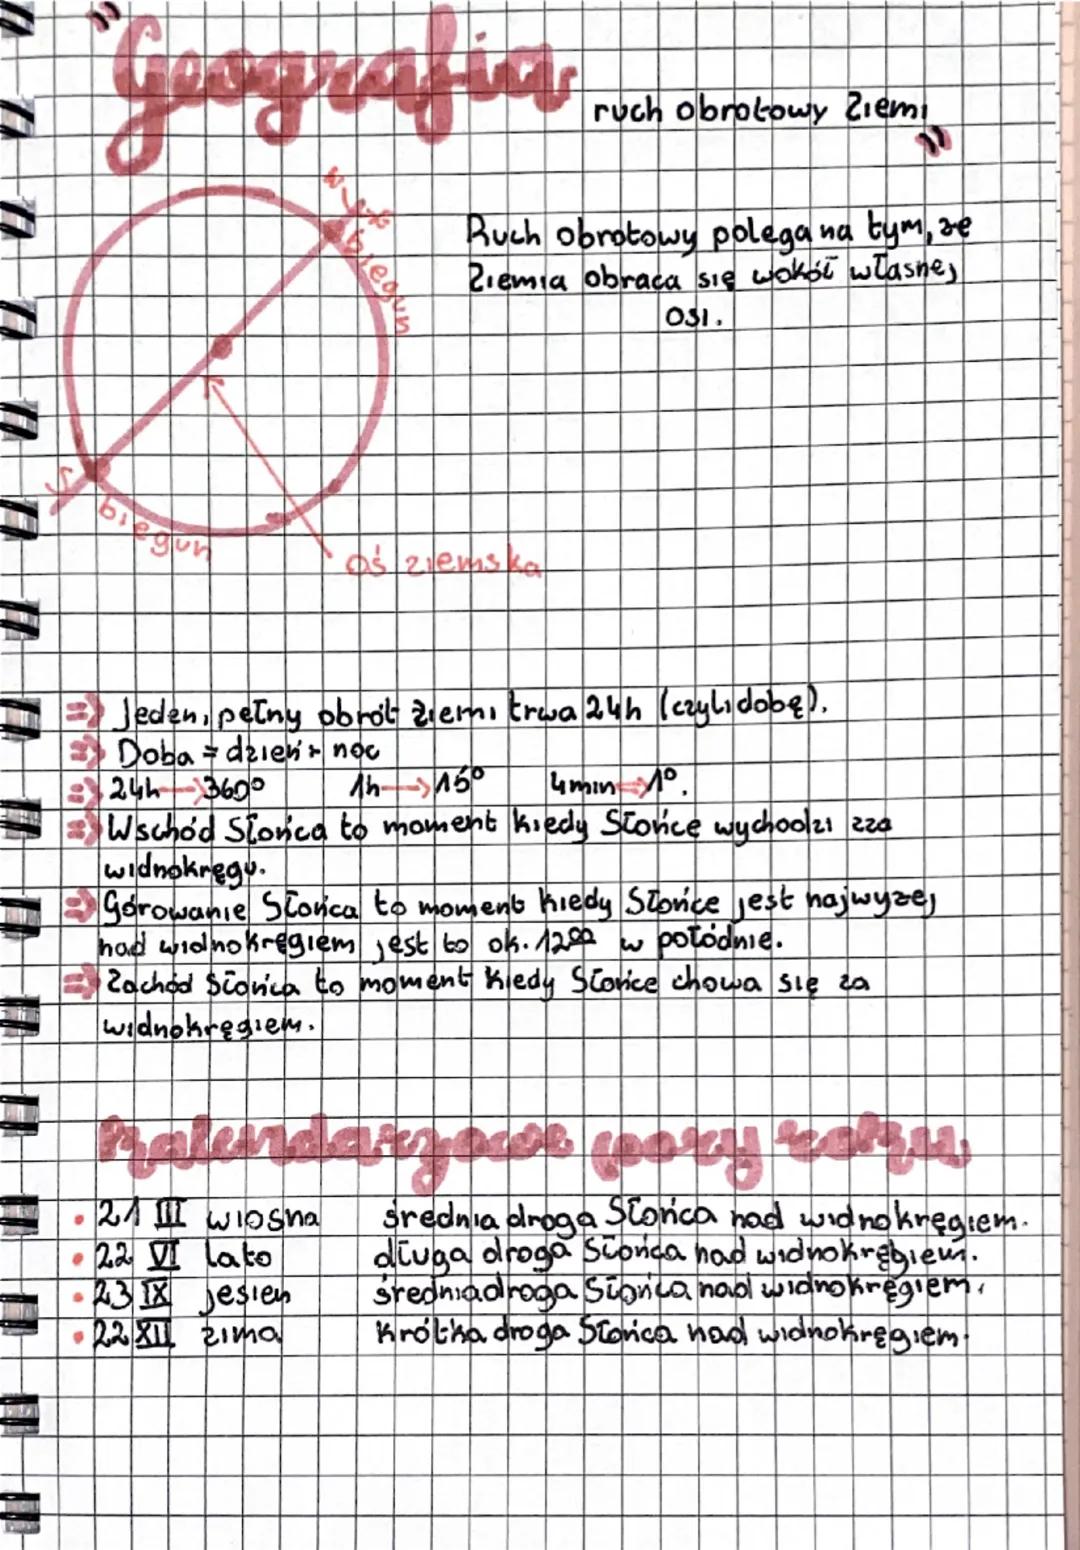 "Geografia
ruch obrotowy Ziemi
"
Ruch obrotowy polega na tym, że
Ziemia obraca się wokół własnej
osi.
biegun
S.
biegun
oś ziemska
=> Jeden, pełny obrót Ziemi trwa 24h (czyli dobę).
=> Doba = dzień + noc
=> 24h → 360° 1h → 15° 4min → 1°.
=> Wschód Słońca to moment kiedy Słońce wychodzi zza
widnokręgu.
=> Górowanie Słońca to moment kiedy Słońce jest najwyżej
nad widnokręgiem jest to ok. 12⁰⁰ w połódnie.
=> Zachód Słońca to moment kiedy Słońce chowa się za
widnokręgiem.
Kalendarzowe pory roku
• 21 III wiosna średnia droga Słońca nad widnokręgiem.
• 22 VI lato długa droga Słońca nad widnokręgiem.
• 23 IX jesień średnia droga Słońca nad widnokręgiem.
• 22 XII zima krótka droga Słońca nad widnokręgiem.